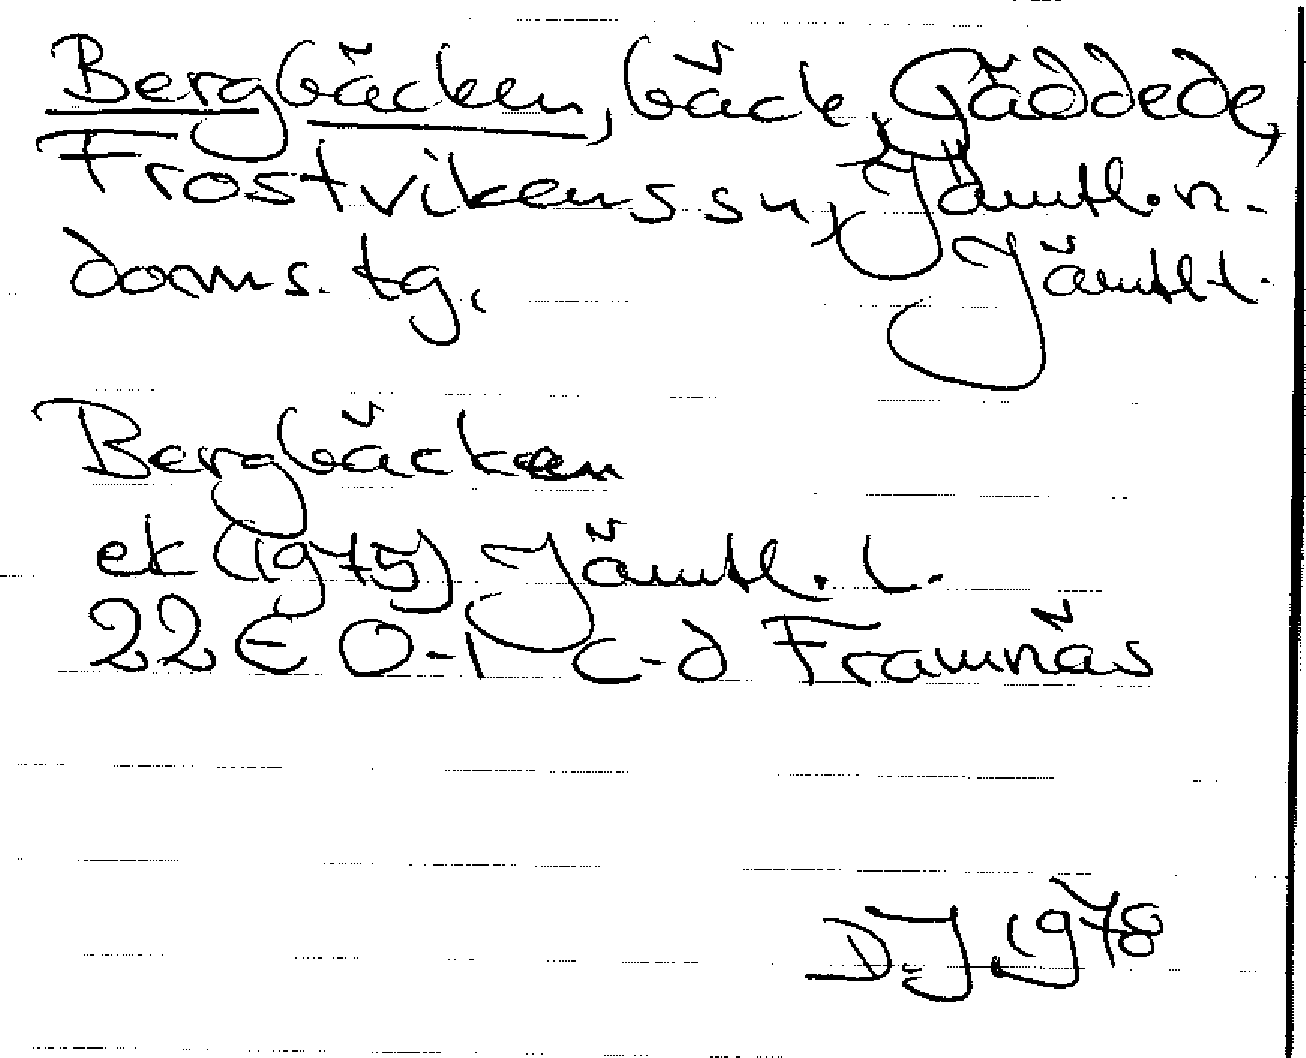 Bergbäcken, bäck, Gäddede,
Frostvikens sn, Jämtl. n.
doms. tg. Jämtl. l.
Bergbäcken
ek (1975) Jämtl. l.
22E 0-1 c-d Framnäs
D.J. 1978